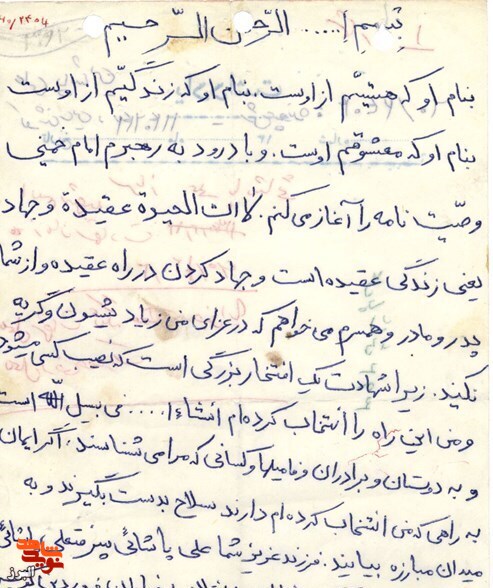 بسم ا..... الرحمن الرحیم
بنام او که هستیم از اوست، بنام او که زندگیم از اوست
بنام او که معشوقم اوست. و با درود به رهبرم امام خمینی
وصیت نامه را آغاز می کنم. ان الحیوة عقیدة و جهاد
یعنی زندگی عقیده است و جهاد کردن در راه عقیده و از شما
پدر و مادر و همسرم می خواهم که در عزای من زیاد شیون و گریه
نکنید. زیرا شهادت یک افتخار بزرگی است که نصیب کسی میشود
و من این راه را انتخاب کرده ام انشاء ا.... فی سبیل الله است
و به دوستان و برادران و فامیلها و کسانی که مرا می شناسند. اگر ایمان
به راهی که من انتخاب کرده ام دارند سلاح بدست بگیرند و به
میدان مبارزه بیایند. فرزند عزیز شما علی پاشائی